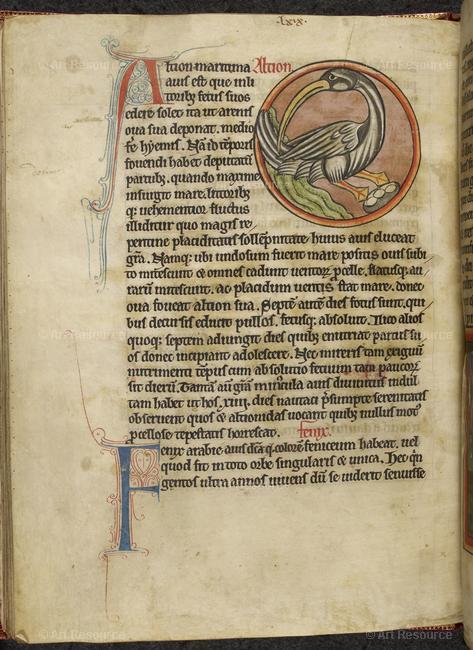 .lxix.
Altion maritima Altion.
auis est que in li
toribꝫ fetus suos
edere solet ita ut arenis
oua sua deponat. medio
fe hyemis. Nā id tēporis
fouendi habet deputati
partibꝫ. quando maxime
insurgit mare. litoribꝫ
qꝫ uehementior fluctus
illiditur quo magis re,
pentine placiditatis sollēpnitate huius auis eluceat
grā. Namqꝫ ubi undosum fuerit mare positis ouis subi
to mitescunt & omnes cadunt uentorꝝ pcelle. flatusqꝫ au
rarū mitescunt. ac placidum uentis stat mare. donec
oua foueat altion sua. Septē autē dies fotus sunt. qui
bus decursis educit pullos. fetusqꝫ absoluit. Ilico alios
quoqꝫ septem adiungit dies quibꝫ enutriat partus su
os donec incipiant adolescere. Nec mireris tam exiguū
nutrimenti tēpus cum absolutio fetuum tam paucorꝝ
sit dierū. Tantā autē grām minuscula auis diuinitus indul
tam habet ut hos .xiiii. dies nautaci p̄sumpte serenitatis
obseruent quos & altionidas uocant quibꝫ nullus mot᾿
pcellose tepestatis horrescat. fenix.
Fenix arabie auis dicta qꝫ colorē feniceum habeat. uel
quod sit in toto orbe singularis & unica. Hec qn̄
gentos ultra annos uiuens dū se uiderit senuisse
© Art Resource